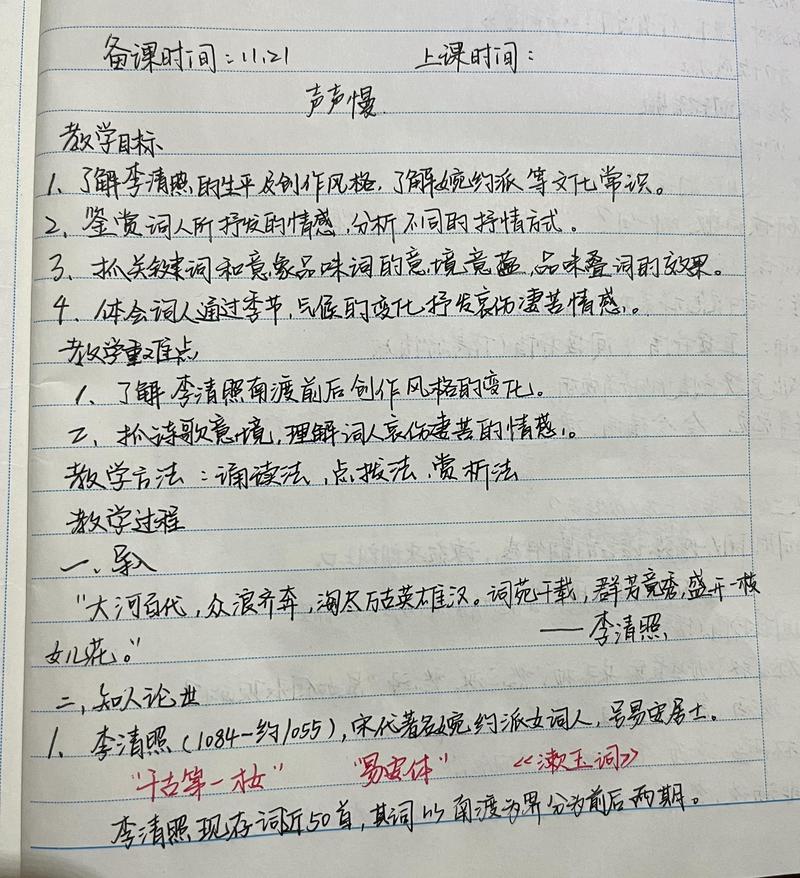 备课时间：11.21 上课时间：
声声慢
教学目标
1、了解李清照的生平及创作风格，了解婉约派等文化常识。
2、鉴赏词人所抒发的情感，分析不同的抒情方式。
3、抓关键词和意象品味词的意境意蕴，品味叠词的效果。
4、体会词人通过季节，气候的变化抒发哀伤凄苦情感。
教学重难点
1、了解李清照南渡前后创作风格的变化。
2、抓诗歌意境，理解词人哀伤凄苦的情感。
教学方法：诵读法，点拨法，赏析法
教学过程
一、导入
“大河百代，众浪齐奔，淘尽万古英雄汉。词苑千载，群芳竞秀，盛开一枝
——李清照
女儿花。”
二、知人论世
1、李清照（1084-约1055），宋代著名婉约派女词人，号易安居士。
“千古第一女” “易安体” 《漱玉词》
李清照现存词近50首，其词以南渡为界分为前后两期。